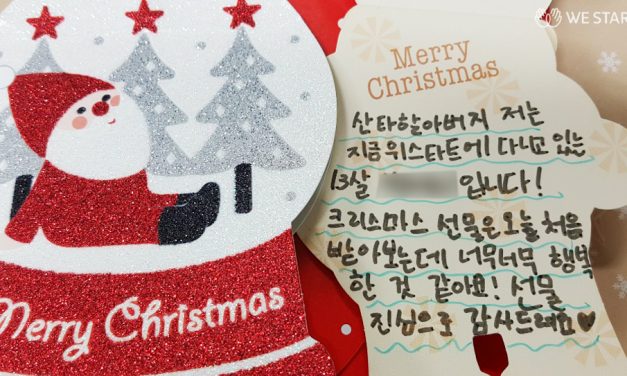 WE STAR
Merry Christmas
Merry
Christmas
산타할아버지 저는
지금위스타트에 다니고 있는
13살 입니다!
크리스마스 선물은오늘 처음
받아보는데 너무너무 행복
한 것 같아요! 선물
진심으로 감사드려요♥